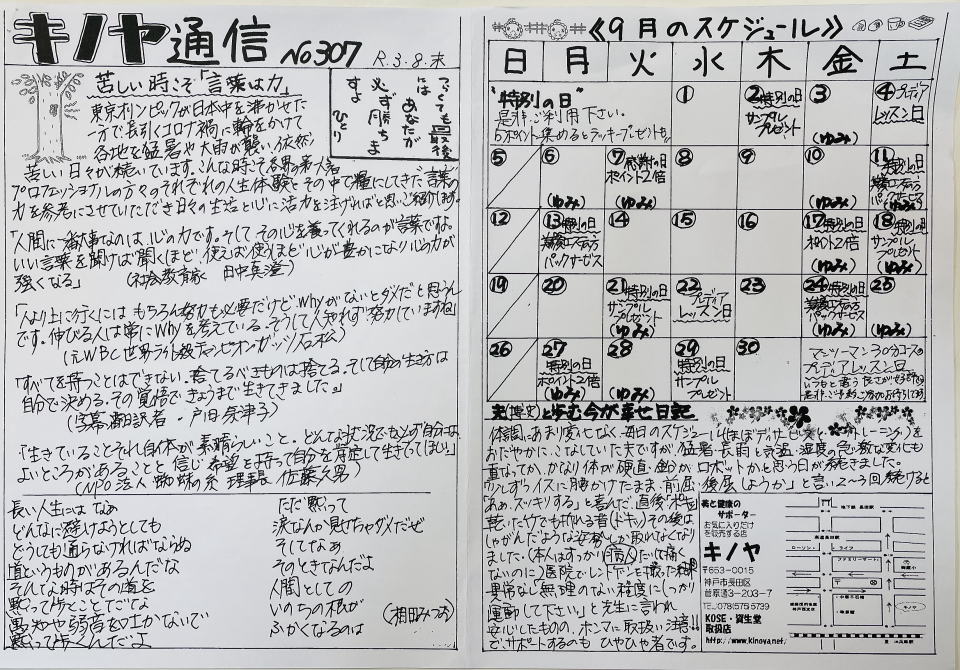 キノヤ通信 No.307 R.3.8.末
苦しい時こそ「言葉は力」
つらくても最後
には あなたが
必ず勝ちま
すよ
ひとり
東京オリンピックが日本中を沸かせた
一方で長引くコロナ禍に輪をかけて
各地を猛暑や大雨が襲い依然
苦しい日々が続いています。こんな時こそ各界の第一人者
プロフェッショナルの方々のそれぞれの人生体験とその中で糧にしてきた言葉の
力を参考にさせていただき日々の生活と心に活力を注げればと思いご紹介します。
「人間に一番大事なのは、心の力です。そして その心を養ってくれるのが言葉ですよ。
いい言葉を聞けば聞くほど、使えば使うほど 心が豊かになり心の力が
強くなる」 (社会教育家 田中真澄)
「人より上に行くには もちろん努力も必要だけど、Whyがないとダメだと思うん
です。伸びる人は常にWhyを考えている。そうして人知れず努力していますね」
(元WBC世界ライト級チャンピオン ガッツ石松)
「すべてを持つことはできない。捨てるべきものは捨てる。そして自分の生き方は
自分で決める。その覚悟できょうまで生きてきました。」
(字幕翻訳者・戸田奈津子)
「生きていることそれ自体が素晴らしいこと。どんな状況でも必ず自分には
よいところがあることを信じ希望を持って自分を肯定して生きてほしい」
(NPO法人 蜘蛛の糸 理事長 佐藤久男)
長い人生には なあ
どんなに避けようとしても
どうしても通らなければならぬ
道というものがあるんだな
そんな時はその道を
黙って歩くことだな
愚知や弱音を吐かないで
黙って歩くんだよ
ただ黙って
涙なんか見せちゃダメだぜ
そしてなあ
そのときなんだよ
人間としての
いのちの根が
ふかくなるのは
(相田みつを)
《9月のスケジュール》
日 月 火 水 木 金 土
"特別の日"
是非ご利用下さい。
5ポイント集めるとラッキープレゼントも
①
② 特別の日
サンプル
プレゼント
③
(ゆみ)
④ プレディア
レッスン日
⑤
⑥
(ゆみ)
⑦ 感謝の日
ポイント2倍
(ゆみ)
⑧
⑨
⑩
(ゆみ)
⑪ 特別の日
美容エステの方
パックサービス
⑫
⑬ 特別の日
美容エステの方
パックサービス
⑭
⑮
⑯
⑰ 特別の日
ポイント2倍
(ゆみ)
⑱ 特別の日
サンプル
プレゼント
(ゆみ)
⑲
⑳
㉑ 特別の日
サンプル
プレゼント
(ゆみ)
㉒ プレディア
レッスン日
㉓
㉔ 特別の日
美容エステの方
パックサービス
(ゆみ)
㉕
(ゆみ)
㉖
㉗ 特別の日
ポイント2倍
(ゆみ)
㉘
(ゆみ)
㉙ 特別の日
サンプル
プレゼント
㉚
マンツーマン30分コースの
プレディアレッスン日
夫(博史)と歩む今が幸せ日記
体調にあまり変化もなく、毎日のスケジュール(ほぼデイサービスと トレーニング)を
おだやかに、こなしていた夫ですが、猛暑・長雨と気温・湿度の急激な変化も
重なってか、かなり体が硬直・金分がロボットかと思う日が続きました。
少しずつイスに腰かけたまま、前屈、後屈しようか」と言い2~3回続けると
「ああ、スッキリする」と喜んだ直後「ポキッ」
乾いた竹でも折れる音(ドキッ)その後は
しゃがんだような姿勢しか取れなくなり
ました。(本人はすっかり
ないのに)医院でレントゲンを撮った結果
異常なし 無理のない程度にしっかり
運動して下さい」と先生に言われ
安心したものの、ホンマに取扱い注意!!
で、サポートするのも ひやひや者です。
美と健康の
サポーター
お気に入りだけ
を販売する店
キノヤ
〒653-0015
神戸市長田区
菅原通3-203-7
TEL.078(575)5739
KOSE・資生堂
取扱店
http://www.kinoya.net/
地下鉄 長田駅
高速長田駅
ローソン
ライフ
ファミリーマート
キノヤ